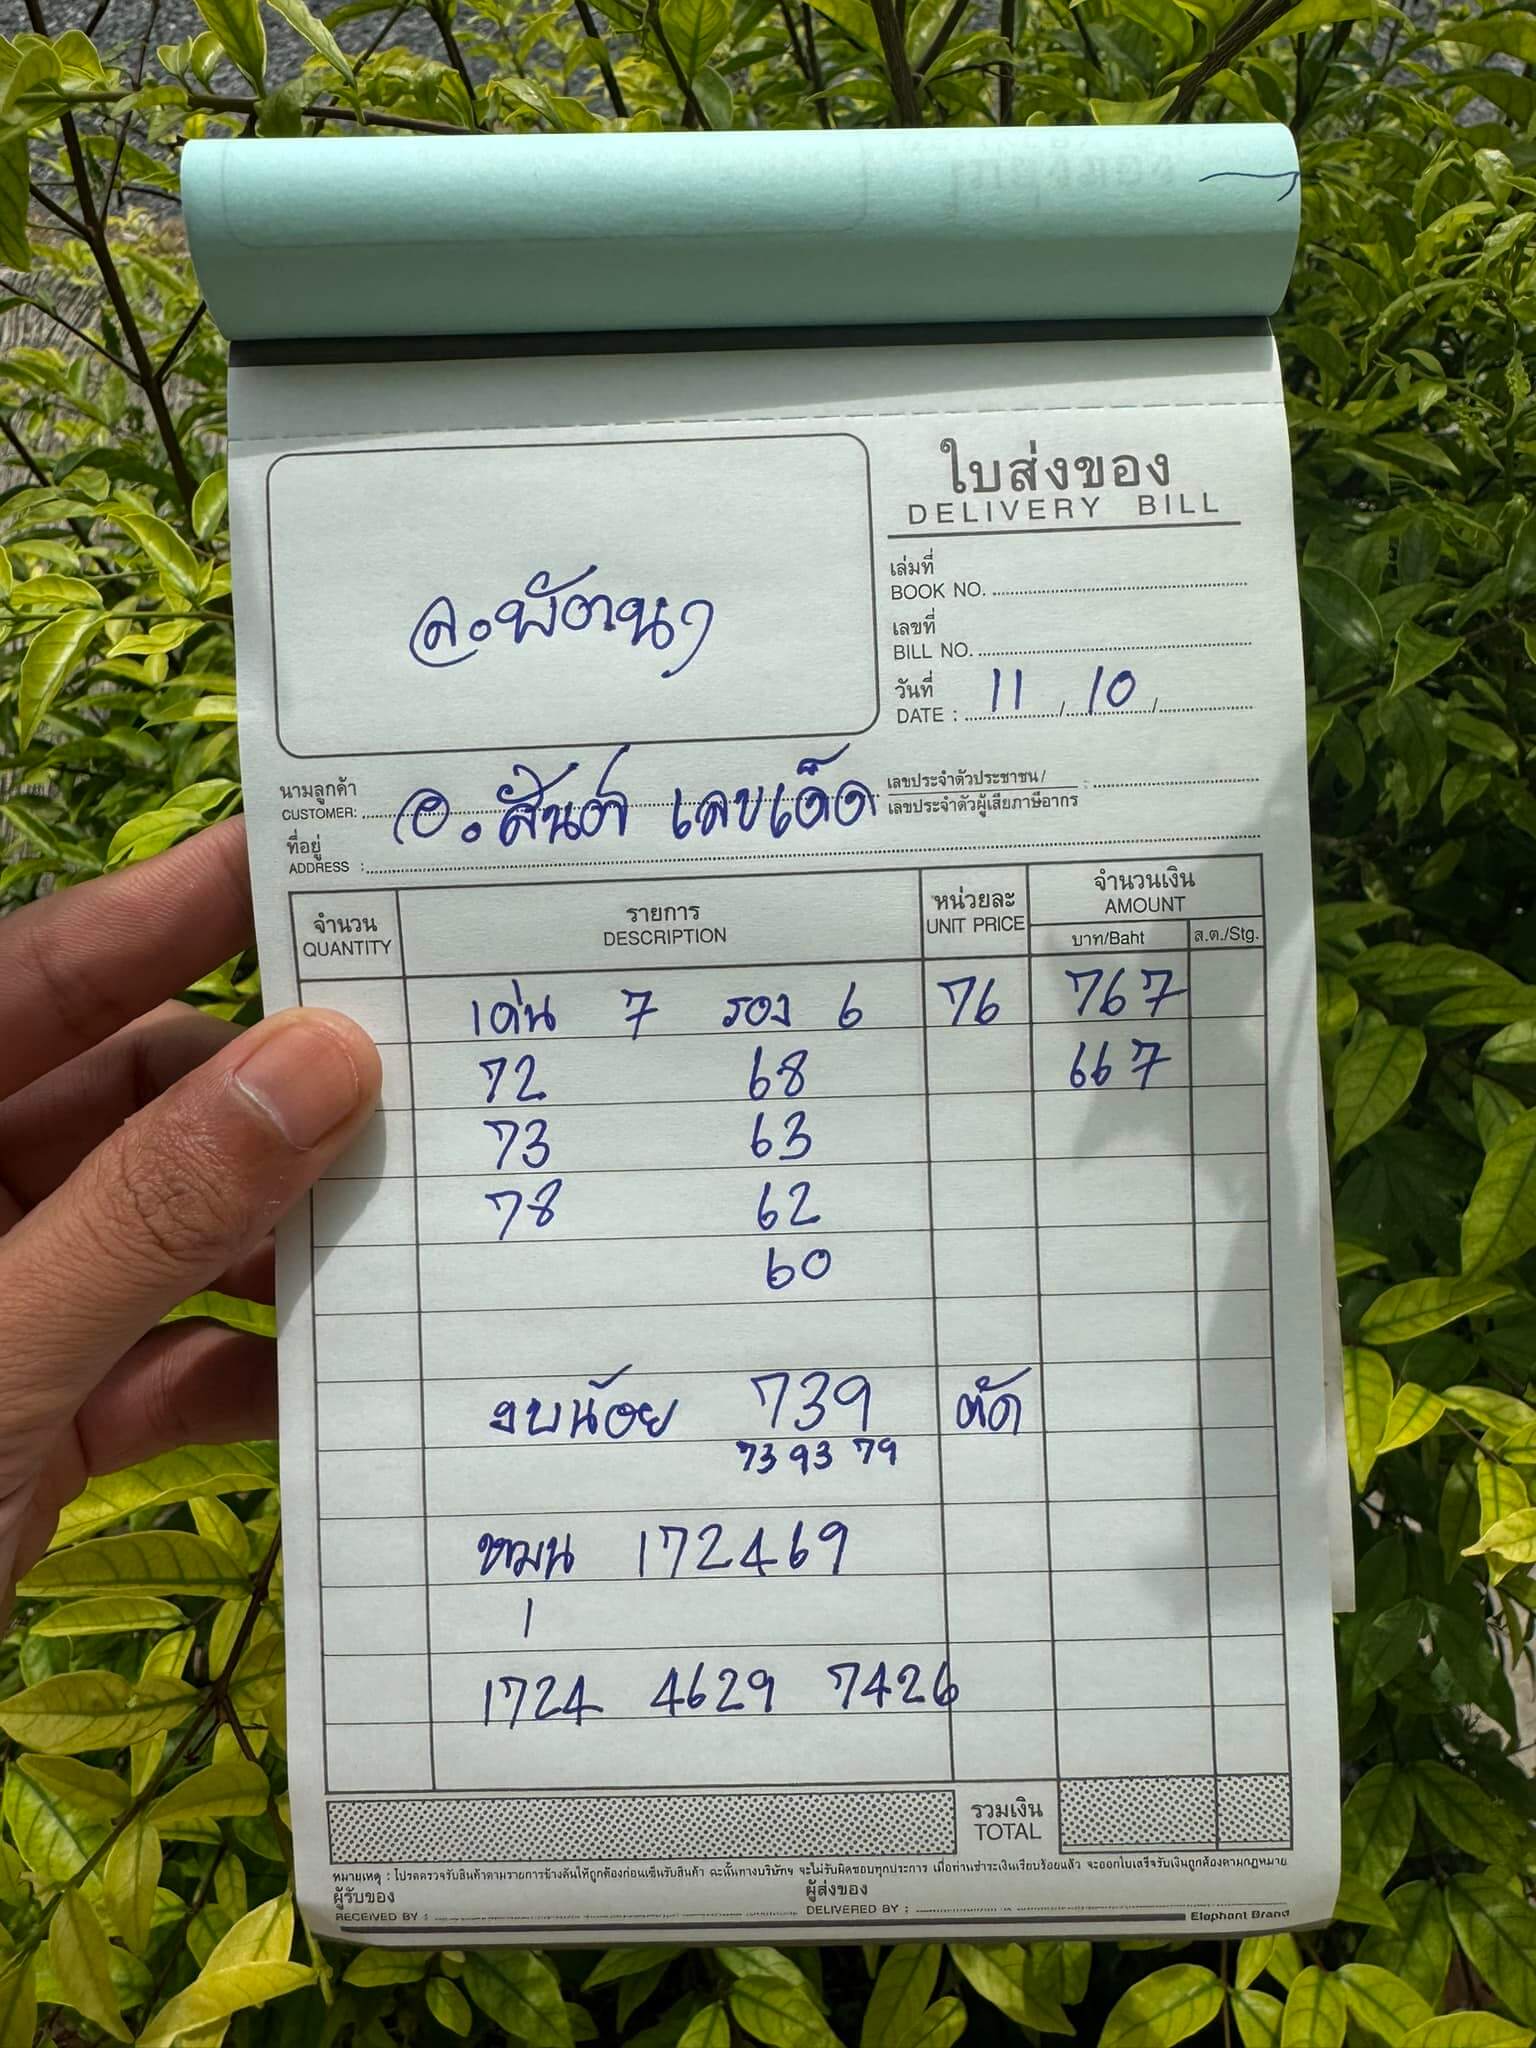 ใบส่งของ
DELIVERY BILL
จ.พัฒนา
เล่มที่
BOOK NO.
เลขที่
BILL NO.
วันที่
DATE : 11 / 10 /
นามลูกค้า
CUSTOMER: อ.สันต์ เลขเด็ด
เลขประจำตัวประชาชน /
เลขประจำตัวผู้เสียภาษีอากร :
ที่อยู่
ADDRESS :
จำนวน รายการ หน่วยละ จำนวนเงิน
QUANTITY DESCRIPTION UNIT PRICE AMOUNT
บาท/Baht ส.ต./Stg.
เด่น 7 รอง 6 76 767
72 68 667
73 63
78 62
60
งบน้อย 739 ตัด
73 93 79
หมุน 172469
1
1724 4629 7426
รวมเงิน
TOTAL
หมายเหตุ : โปรดตรวจรับสินค้าตามรายการข้างต้นให้ถูกต้องก่อนเซ็นรับสินค้า ฉะนั้นทางบริษัทฯ จะไม่รับผิดชอบทุกประการ เมื่อท่านชำระเงินเรียบร้อยแล้ว จะออกใบเสร็จรับเงินถูกต้องตามกฎหมาย
ผู้รับของ ผู้ส่งของ
RECEIVED BY : DELIVERED BY :
Elephant Brand